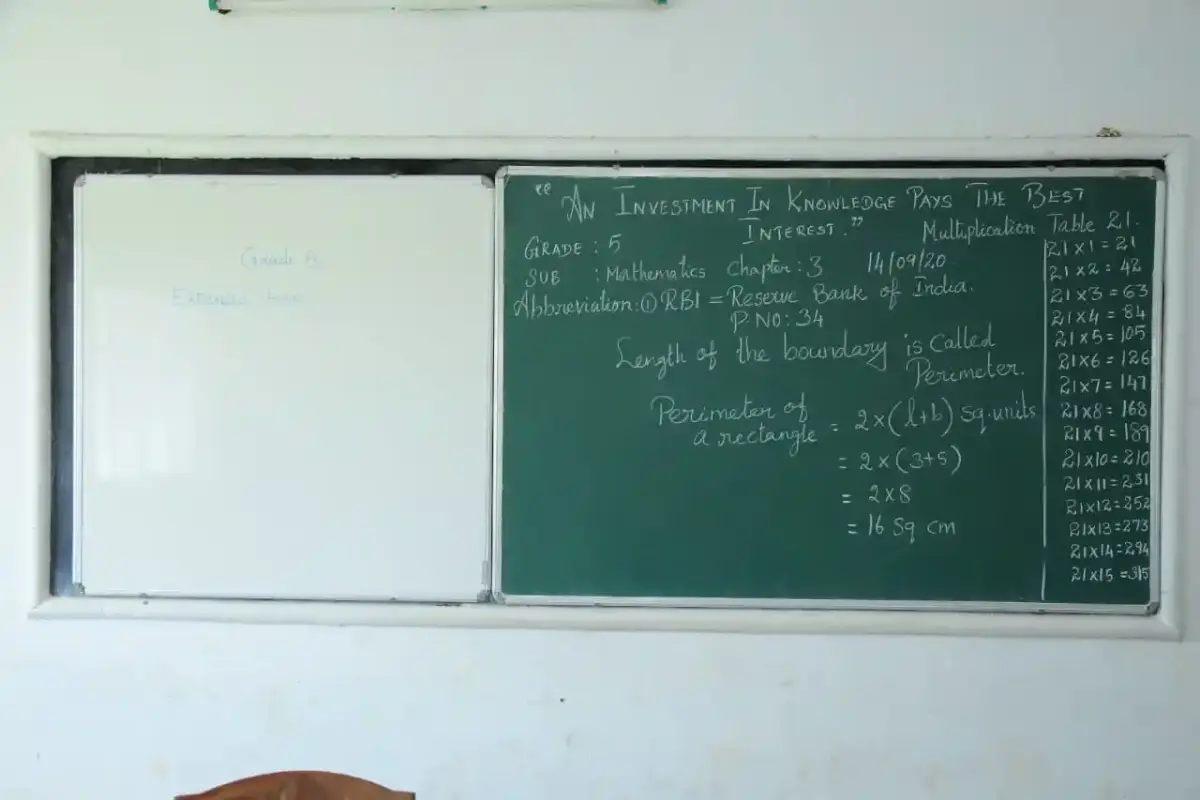 Grade
“ AN INVESTMENT IN KNOWLEDGE PAYS THE BEST
INTEREST.”
GRADE : 5
SUB : Mathematics Chapter : 3 14/09/20
Abbreviation: ① RBI = Reserve Bank of India.
P.NO: 34
Length of the boundary is called
Perimeter.
Perimeter of
a rectangle = 2×(l+b) Sq.units
= 2×(3+5)
= 2×8
= 16 Sq cm
Multiplication Table 21.
21×1=21
21×2=42
21×3=63
21×4=84
21×5=105
21×6=126
21×7=147
21×8=168
21×9=189
21×10=210
21×11=231
21×12=252
21×13=273
21×14=294
21×15=315